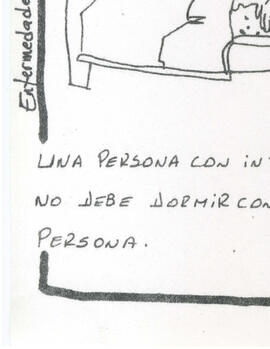 Enfermedade
UNA PERSONA CON IN
NO DEBE DORMIR CON
PERSONA.